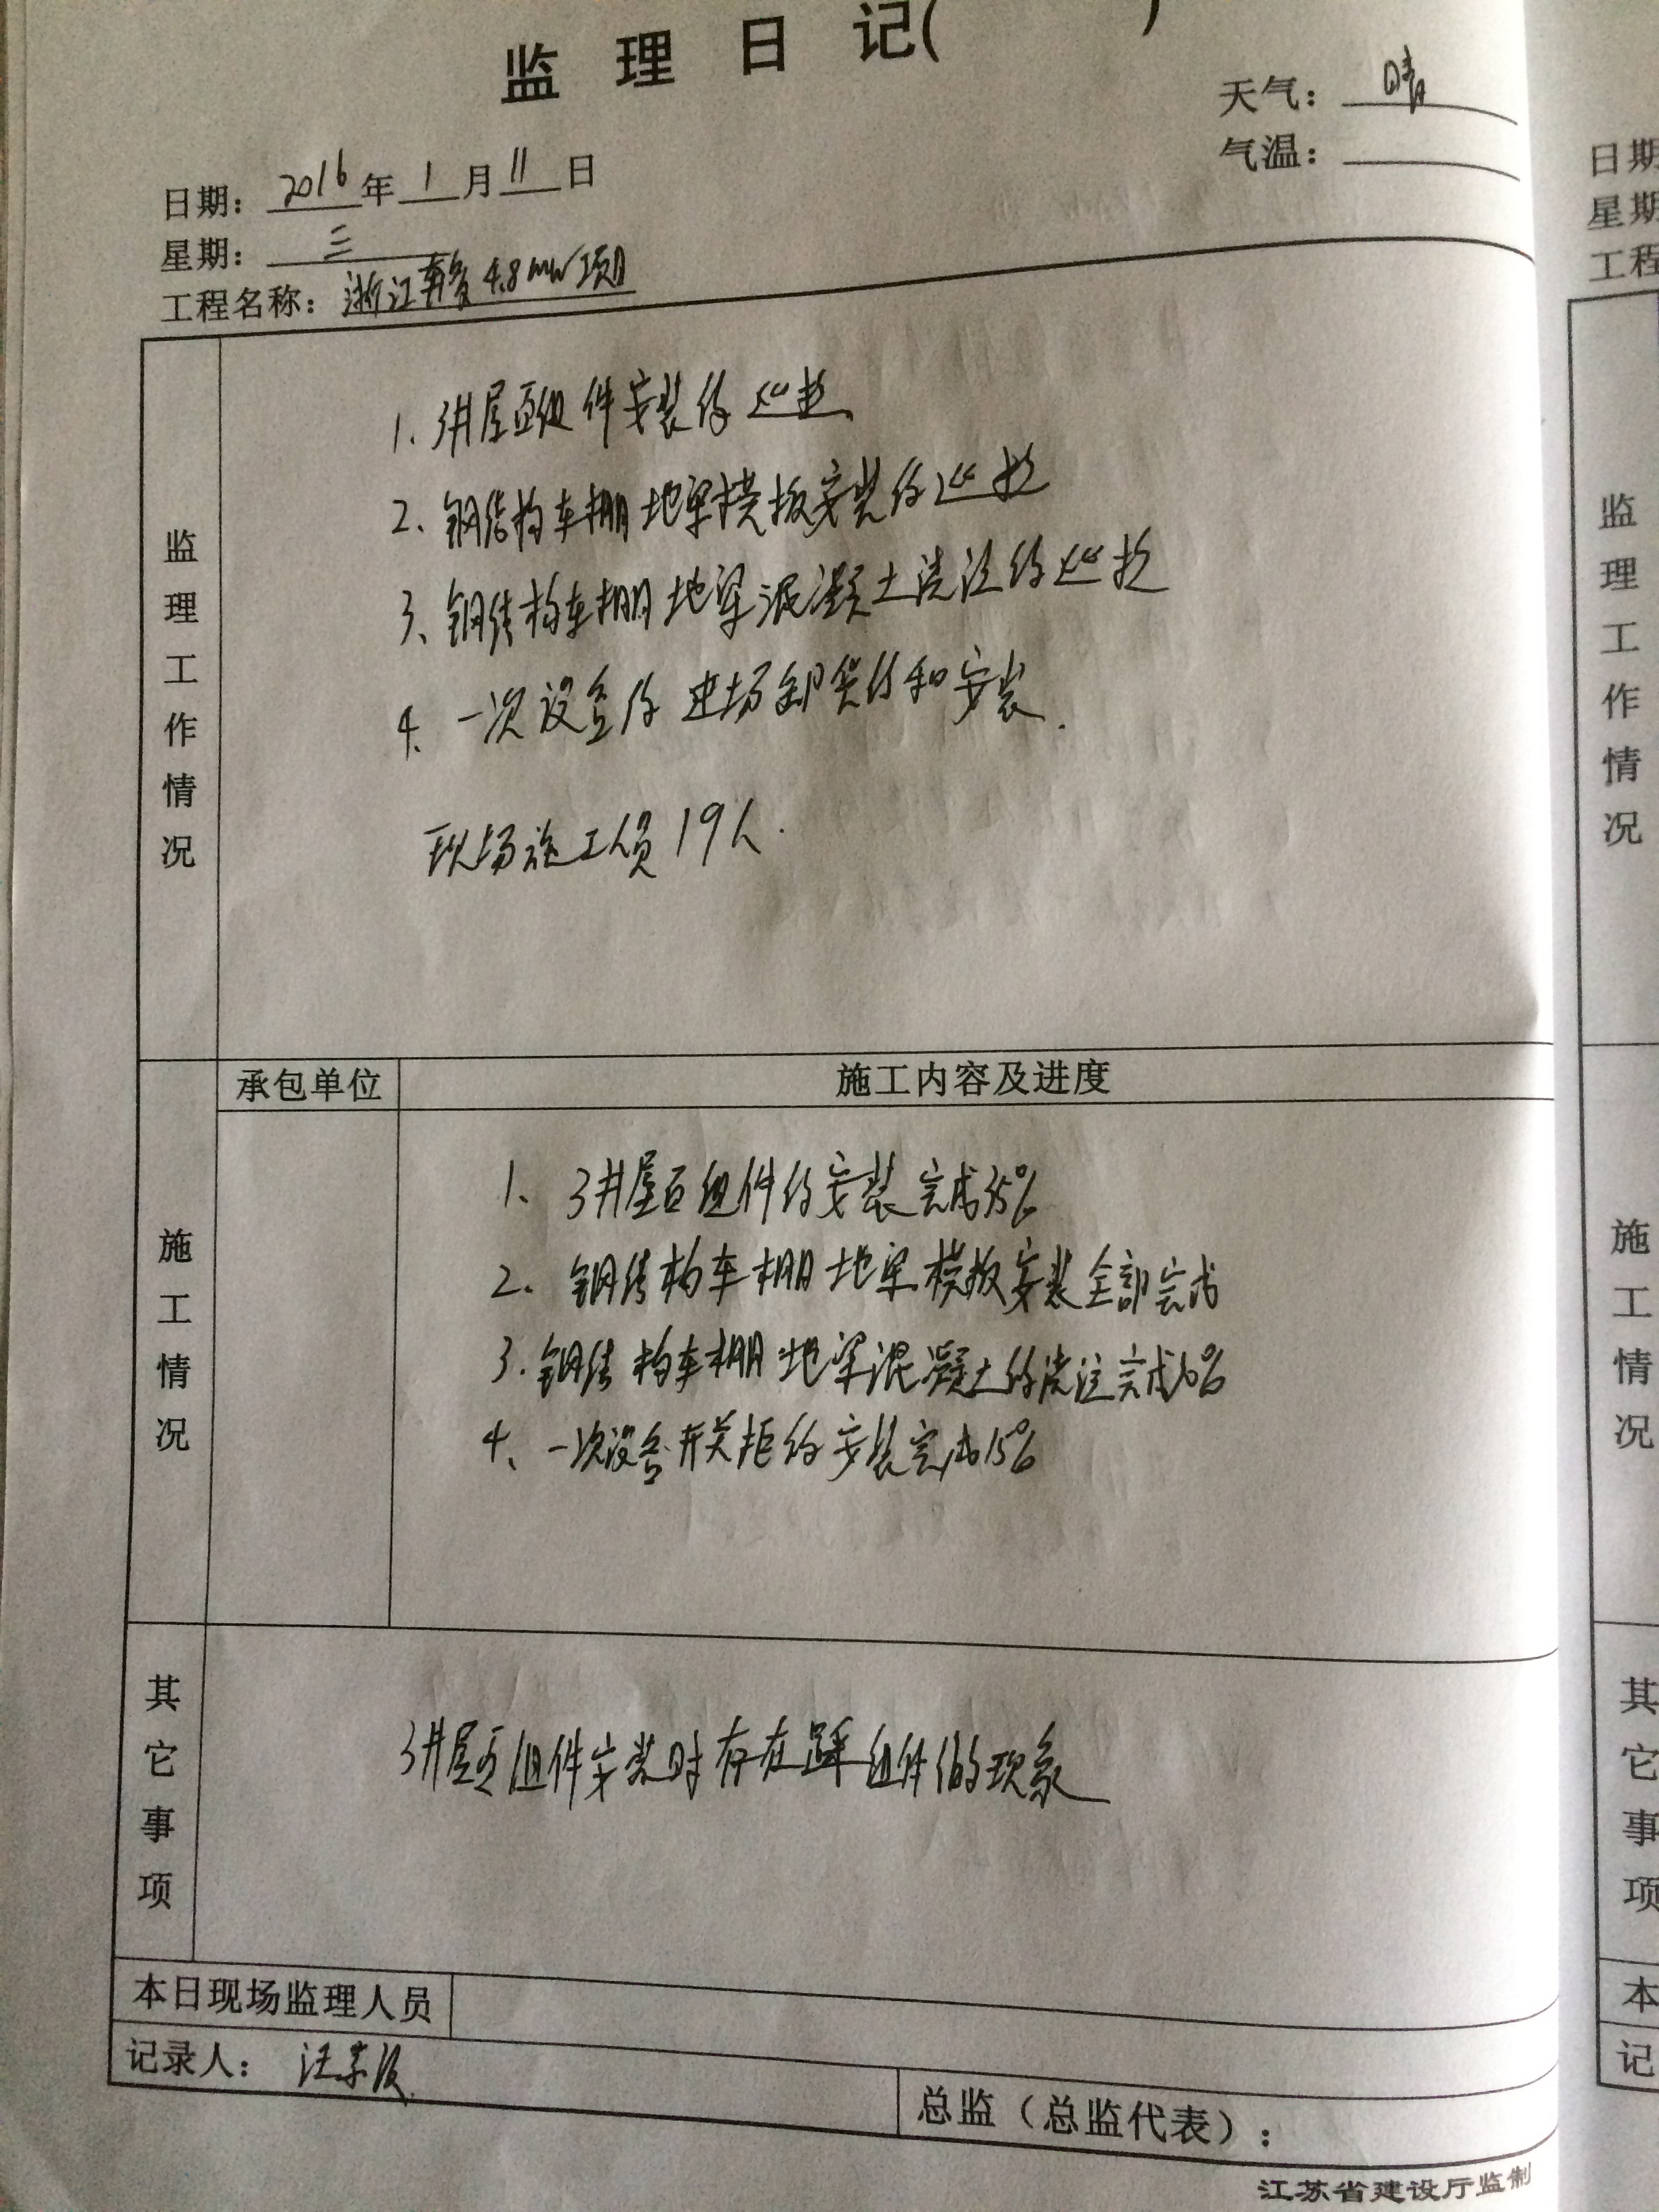 监理日记( )
天气：晴
气温：
日期：2016年1月11日
星期：三
工程名称：浙江 4.8MW项目
监理工作情况
1、3#屋面组件安装的巡视
2、钢结构车棚地梁模板安装的巡视
3、钢结构车棚地梁混凝土浇注的巡视
4、一次设备的进场卸货的和安装.
现场施工人员19人.
承包单位
施工内容及进度
施工情况
1、3#屋面组件的安装完成35%
2、钢结构车棚地梁模板安装全部完成
3.钢结构车棚地梁混凝土的浇注完成
4、一次设备开关柜的安装完成15%
其它事项
3#屋面组件安装时存在踩组件的现象
本日现场监理人员
记录人：汪
总监（总监代表）：
江苏省建设厅监制
日期
星期
工程
监理工作情况
施工情况
其它事项
本
记